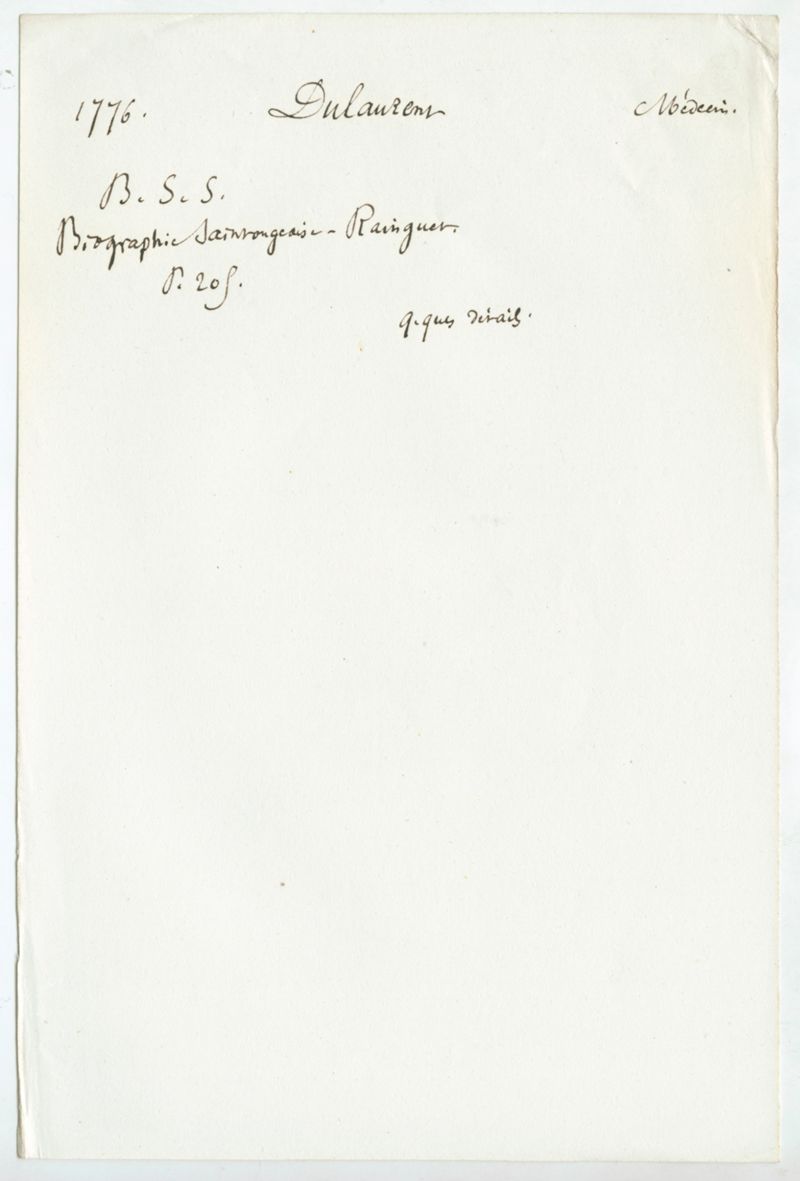 1776. Dulaurent Médecin.
B. S. S.
Biographie Saintongeaise - Rainguet.
P. 205.
q. ques détails.